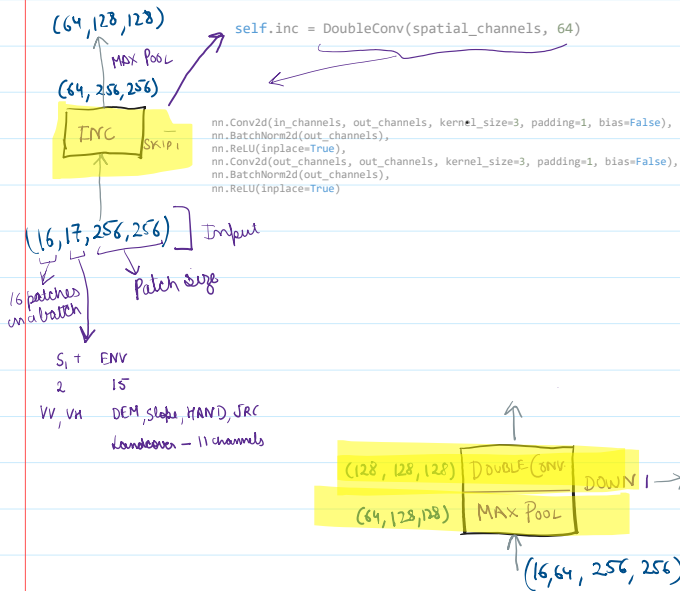 (64,128,128)
self.inc = DoubleConv(spatial_channels, 64)
MAX POOL
(64,256,256)
INC
SKIP1
nn.Conv2d(in_channels, out_channels, kernel_size=3, padding=1, bias=False),
nn.BatchNorm2d(out_channels),
nn.ReLU(inplace=True),
nn.Conv2d(out_channels, out_channels, kernel_size=3, padding=1, bias=False),
nn.BatchNorm2d(out_channels),
nn.ReLU(inplace=True)
(16,17,256,256)
Input
16 patches
in a batch
Patch size
S1 + ENV
2 15
VV, VH DEM, Slope, HAND, JRC
Landcover – 11 channels
(128, 128, 128) DOUBLE CONV
DOWN 1
(64,128,128) MAX POOL
(16,64, 256, 256)